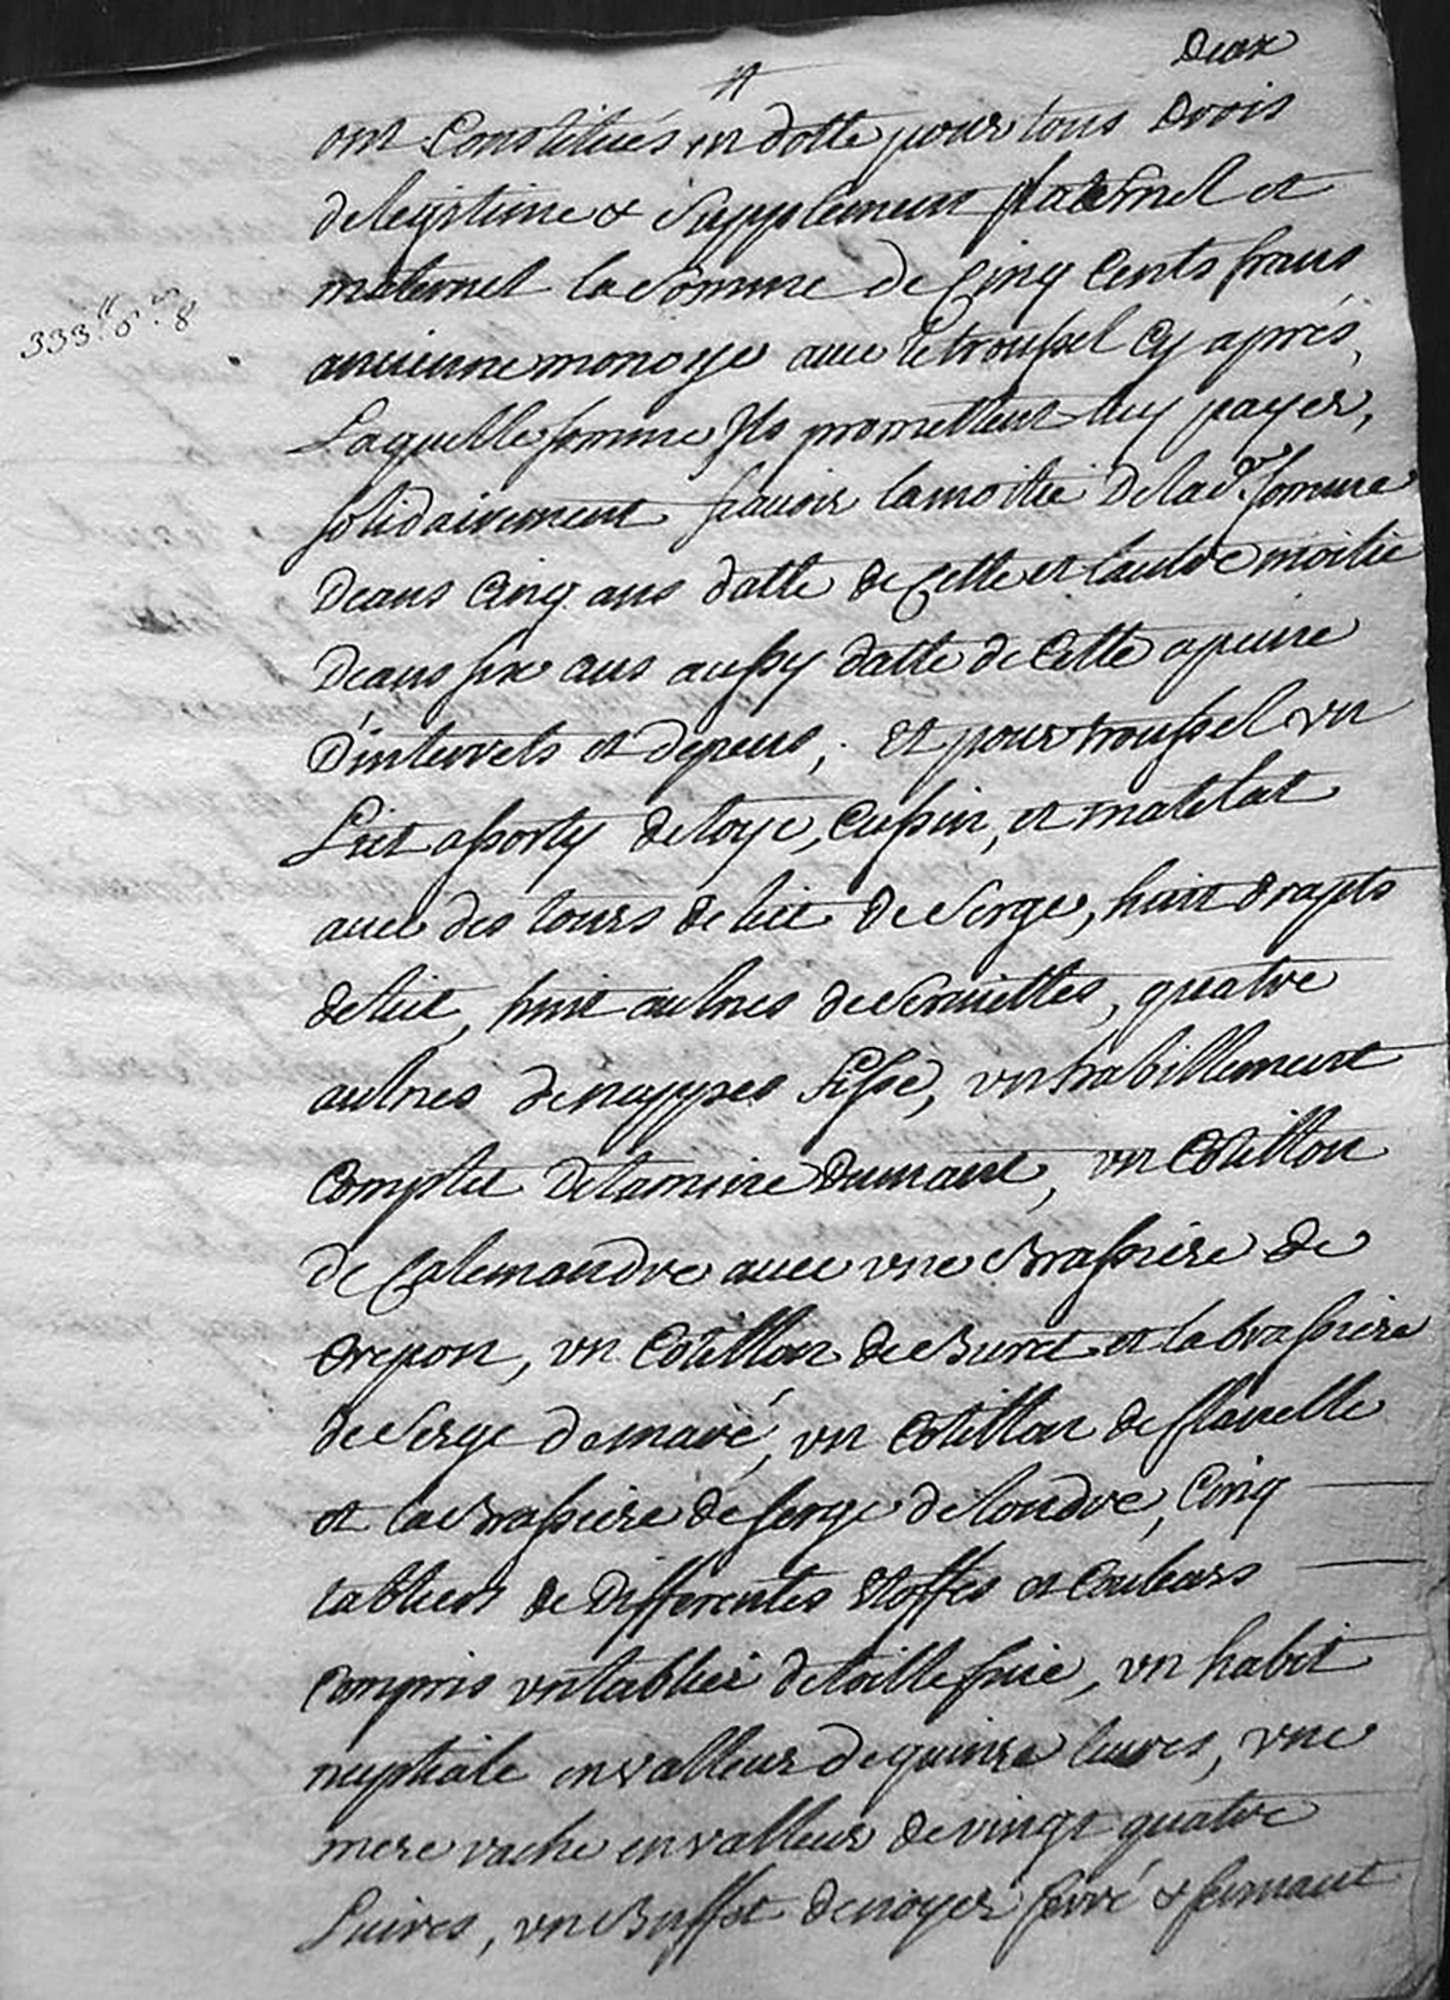 Deux
ont Constitués en dotte pour tous Drois
de legitime & supplement paternel et
maternel la somme de Cinq Cents frans
333.tt 6.s 8
ancienne monoye avec le troussel Cy après,
Laquelle somme Ils promettent luy payer,
solidairement scavoir la moitié De lad.e somme
Deans Cinq ans datte de Cette et lautre moitié
Deans six ans aussy datte de Cette a peine
D'interrets et depens, et pour troussel vn
Lict assorty de toye, Cussin, et matelat
avec des tours de lict de serge, huit drapts
de lict, huit aulnes de serviettes, quatre
aulnes de nappes lisse, vn habillement
Complet Detamine Dumant, vn Cotillon
de Calemandre avec vne Brassiere de
Crepon, vn Cotillon de Buret et la brassiere
de serge Demaré, vn Cotillon de flanelle
et la Brassiere de serge de londre, Cinq
tabliers de Differentes Etoffes et Couleurs
Compris vn tablier de toille fine, vn habit
nuptiale en valleur de quinze livres, vne
mere vache en valleur de vingt quatre
Livres, vn Buffet de noyer ferré & fermant